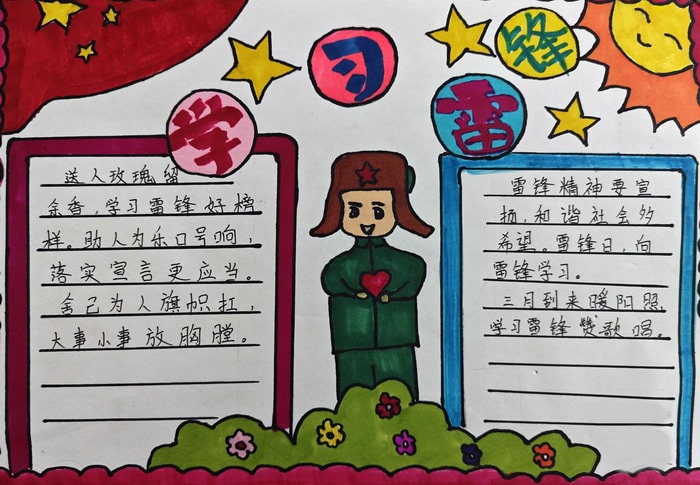 学习雷锋
送人玫瑰留
余香,学习雷锋好榜
样。助人为乐口号响,
落实宣言更应当。
舍己为人旗帜扛,
大事小事放胸膛。
雷锋精神要宣
扬,和谐社会多
希望。雷锋日,向
雷锋学习。
三月到来暖阳照,
学习雷锋赞歌唱。